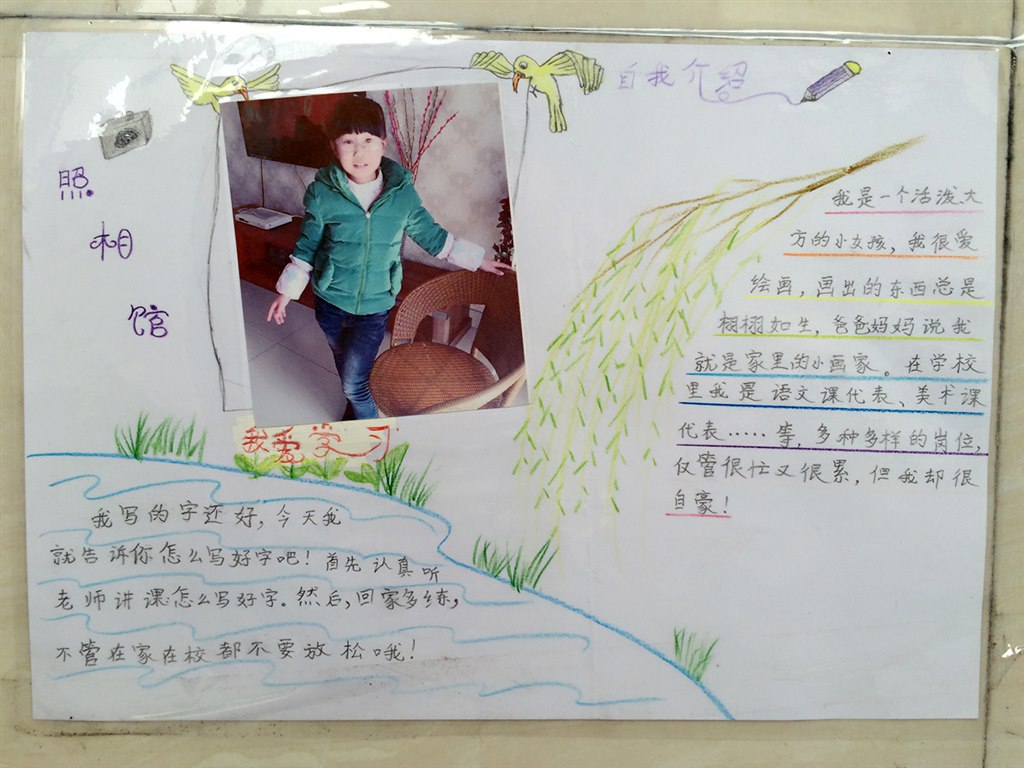 照
相
馆
自我介绍
我是一个活泼大
方的小女孩，我很爱
绘画，画出的东西总是
栩栩如生，爸爸妈妈说我
就是家里的小画家。在学校
里我是语文课代表、美术课
代表……等，多种多样的岗位，
仅管很忙又很累，但我却很
自豪！
我爱学习
我写的字还好，今天我
就告诉你怎么写好字吧！首先认真听
老师讲课怎么写好字。然后，回家多练，
不管在家在校都不要放松哦！